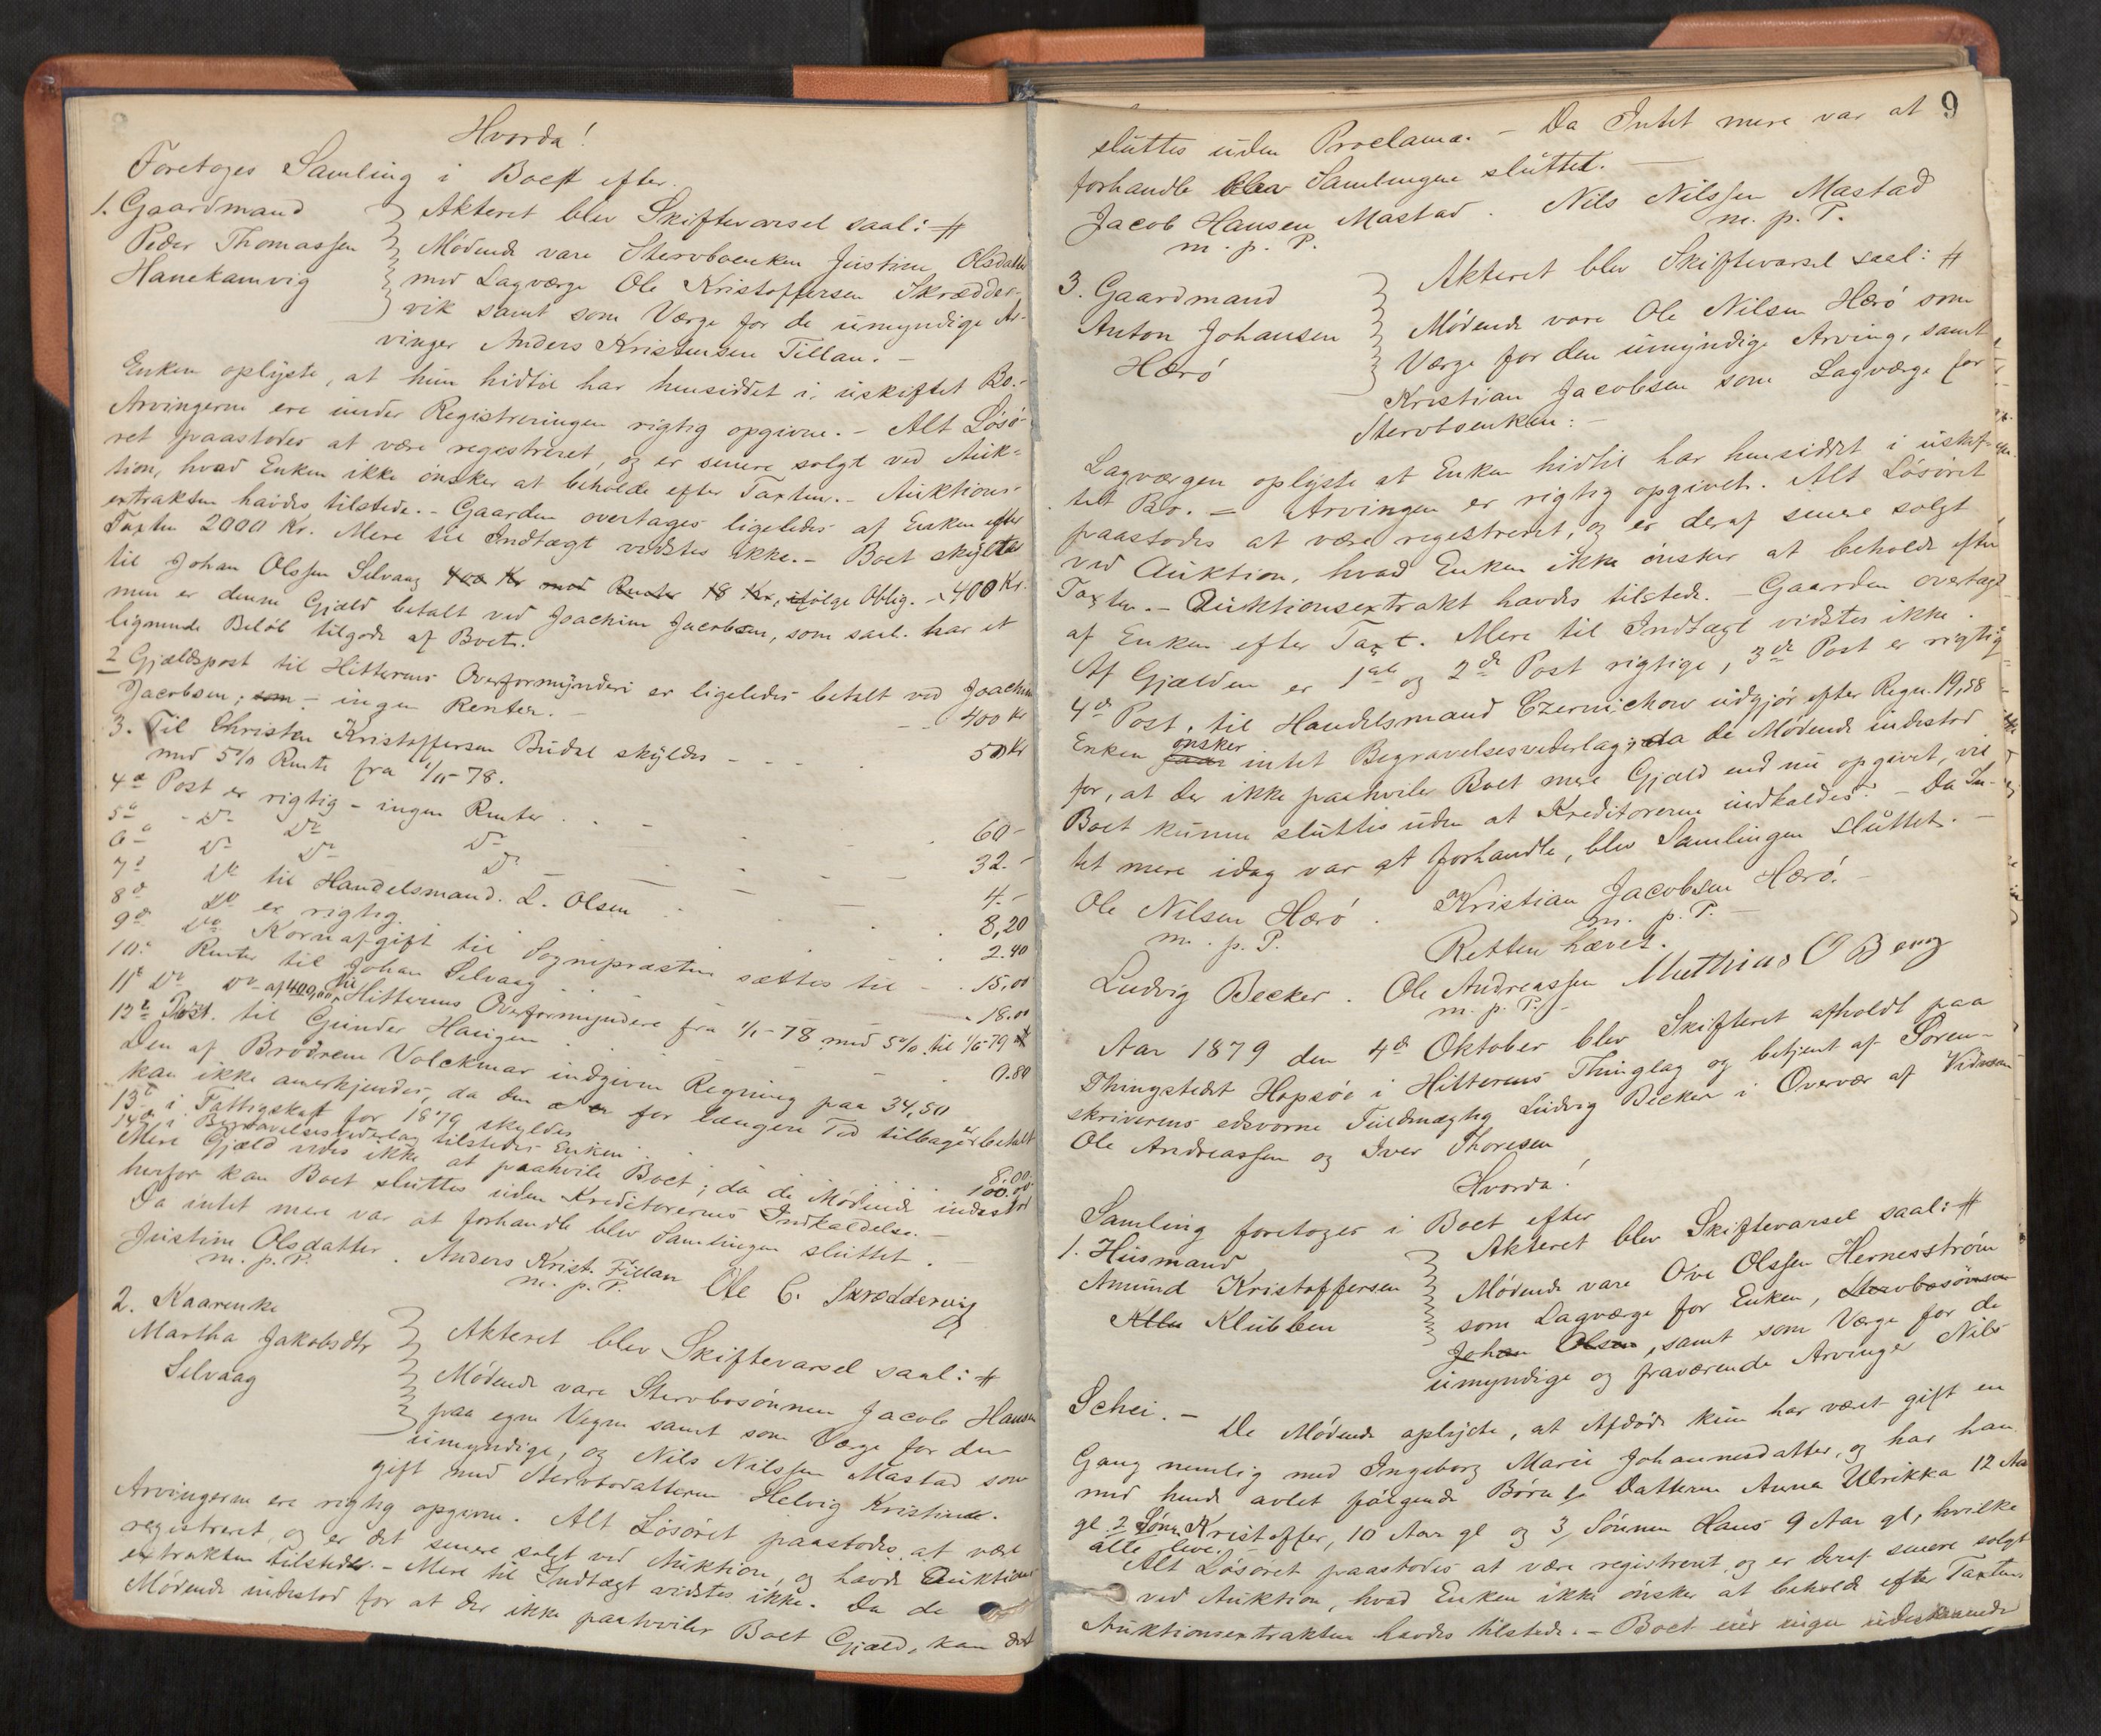 Hvorda!
Foretoges Samling i Boet efter
1. Gaardmand
Peder Thomassen
Hanekamvig
Akteret blev Skiftevarsel saal: #
Mødende vare Stervboenken Justine Olsdatter
med Lagværge Ole Kristoffersen Skrædder-
vik samt som Værge for de umyndige Ar-
vinger Anders Kristensen Fillan. -
Enken oplyste, at hun hidtil har hensiddet i uskiftet Bo. -
Arvingerne ere under Registreringen rigtig opgivne. - Alt Løsø-
ret paastodes at være registreret, og er senere solgt ved Auk-
tion, hvad Enken ikke ønsker at beholde efter Taxten. - Auktions-
extrakten havdes tilstede. - Gaarden overtages ligeledes af Enken efter
Taxten 2000 Kr. Mere til Indtægt vidstes ikke. - Boet skyldte
til Johan Olssen Selvaag 400 Kr med Renter 18 Kr, ifølge Oblig. - 400 Kr.
men er denne Gjæld betalt ved Joachim Jacobsen, som saal. har et
lignende Beløb tilgode af Boet.
2 Gjældspost til Hitterens Overformynderi er ligeledes betalt ved Joachim
Jacobsen; som - ingen Renter. - - - 400 Kr
3. Til Christen Kristoffersen Budal skyldes - - - - 50 Kr
med 5% Rente fra 1/11-78.
4de Post er rigtig - ingen Renter . . - 60 -
5te - Do Do Do - 32. -
6te Do Do Do - 4. -
7de Do til Handelsmand L. Olsen - 8,20
8de Do er rigtig. - 2.40
9de Do Kornafgift til Sognepræsten sættes til - . 15,00
10de Renter til Johan Selvaag - . 18.00
11te Do Do af 400,00 til Hitterens Overformynderi fra 1/1-78 med 5% til 1/6-79
12te Post. til Gunder Haugen . - - . 0.80
Den af Brødrene Volckmar indgivne Regning paa 34,50
kan ikke anerkjendes, da den er for længere Tid tilbage er betalt
13de i Fattigskat for 1879 skyldes . . 8.00
14de i Begravelsesvederlag tilstedes Enken . . 100.00
Mere Gjæld vides ikke at paahvile Boet; da de Mødende indestod
herfor kan Boet sluttes uden Kreditorernes Indkaldelse. -
Da intet mere var at forhandle blev Samlingen sluttet. -
Justine Olsdatter . Anders Krist. Fillan Ole C. Skræddervig
m. p. P. m. p. P.
2. Kaarenke
Martha Jakobsdtr
Selvaag
Akteret blev Skiftevarsel saal: #
Mødende vare Stervbosønnen Jacob Hansen
paa egne Vegne samt som Værge for den
umyndige, og Nils Nilssen Mastad som
gift med Stervbodatteren Helvig Kristine.
Arvingerne ere rigtig opgivne. Alt Løsøret paastodes at være
registreret og er det senere solgt ved Auktion, og havde Auktions-
extrakten tilstede. - Mere til Indtægt vidstes ikke. Da de
Mødende indestod for at der ikke paahviler Boet Gjæld, kan det
9
sluttes uden Proclama. - Da Intet mere var at
forhandle blev Samlingen sluttet. -
Jacob Hansen Mastad . Nils Nilssen Mastad
m. p. P. m. p. P.
3. Gaardmand
Anton Johansen
Hærø
Akteret blev Skiftevarsel saal: #
Mødende vare Ole Nilsen Hærø som
Værge for den umyndige Arving, samt
Kristian Jacobsen som Lagværge for
Stervboenken: -
Lagværgen oplyste at Enken hidtil har hensiddet i uskif-
tet Bo. - Arvingen er rigtig opgivet. Alt Løsøret
paastodes at være registreret, og er deraf senere solgt
ved Auktion, hvad Enken ikke ønsker at beholde efter
Taxten. - Auktionsextrakt havdes tilstede. - Gaarden overtages
af Enken efter Taxt. Mere til Indtægt vidstes ikke.
Af Gjælden er 1ste og 2de Post rigtige, 3de Post er rigtig
4de Post, til Handelsmand Czernichow udgjør efter Regn. 19,58
Enken faar ønsker intet Begravelsesvederlag; da de Mødende indestod
for, at der ikke paahviler Boet mere Gjæld end nu opgivet, vil
Boet kunne sluttes uden at Kreditorerne indkaldes. - Da In-
tet mere idag var at forhandle, blev Samlingen sluttet. -
Ole Nilsen Hærø . Kristian Jacobsen Hærø. -
m. p. P. m. p. P. -
Retten hævet.
Ludvig Becker . Ole Andreassen Mathias O Berg
m. p. P. -
Aar 1879 den 4de Oktober blev Skifteret afholdt paa
Thingstedet Hopsøe i Hitterens Thinglag og betjent af Soren-
skriverens edsvorne Fuldmægtig Ludvig Becker i Overvær af Vidnerne
Ole Andreassen og Iver Thoresen
Hvorda!
Samling foretoges i Boet efter
1. Husmand
Amund Kristoffersen
Klubben
Akteret blev Skiftevarsel saal: #
Mødende vare Ove Olssen Hernesstrøm
som Lagværge for Enken, Stervbosønnen
Johan Olsen, samt som Værge for de
umyndige og fraværende Arvinger Nils
Schei. -
De Mødende oplyste, at Afdøde kun har været gift en
Gang nemlig med Ingeborg Marie Johannesdatter, og har han
med hende avlet følgende Børn 1/ Datteren Anna Ulrikka 12 Aar
gl 2 Sønn Kristoffer, 10 Aar gl og 3/ Sønnen Hans 9 Aar gl, hvilke
alle leve.
Alt Løsøret paastodes at være registreret og er deraf senere solgt
ved Auktion, hvad Enken ikke ønsker at beholde efter Taxten.
Auktionsextrakten havdes tilstede. - Boet eier ingen udestaaende